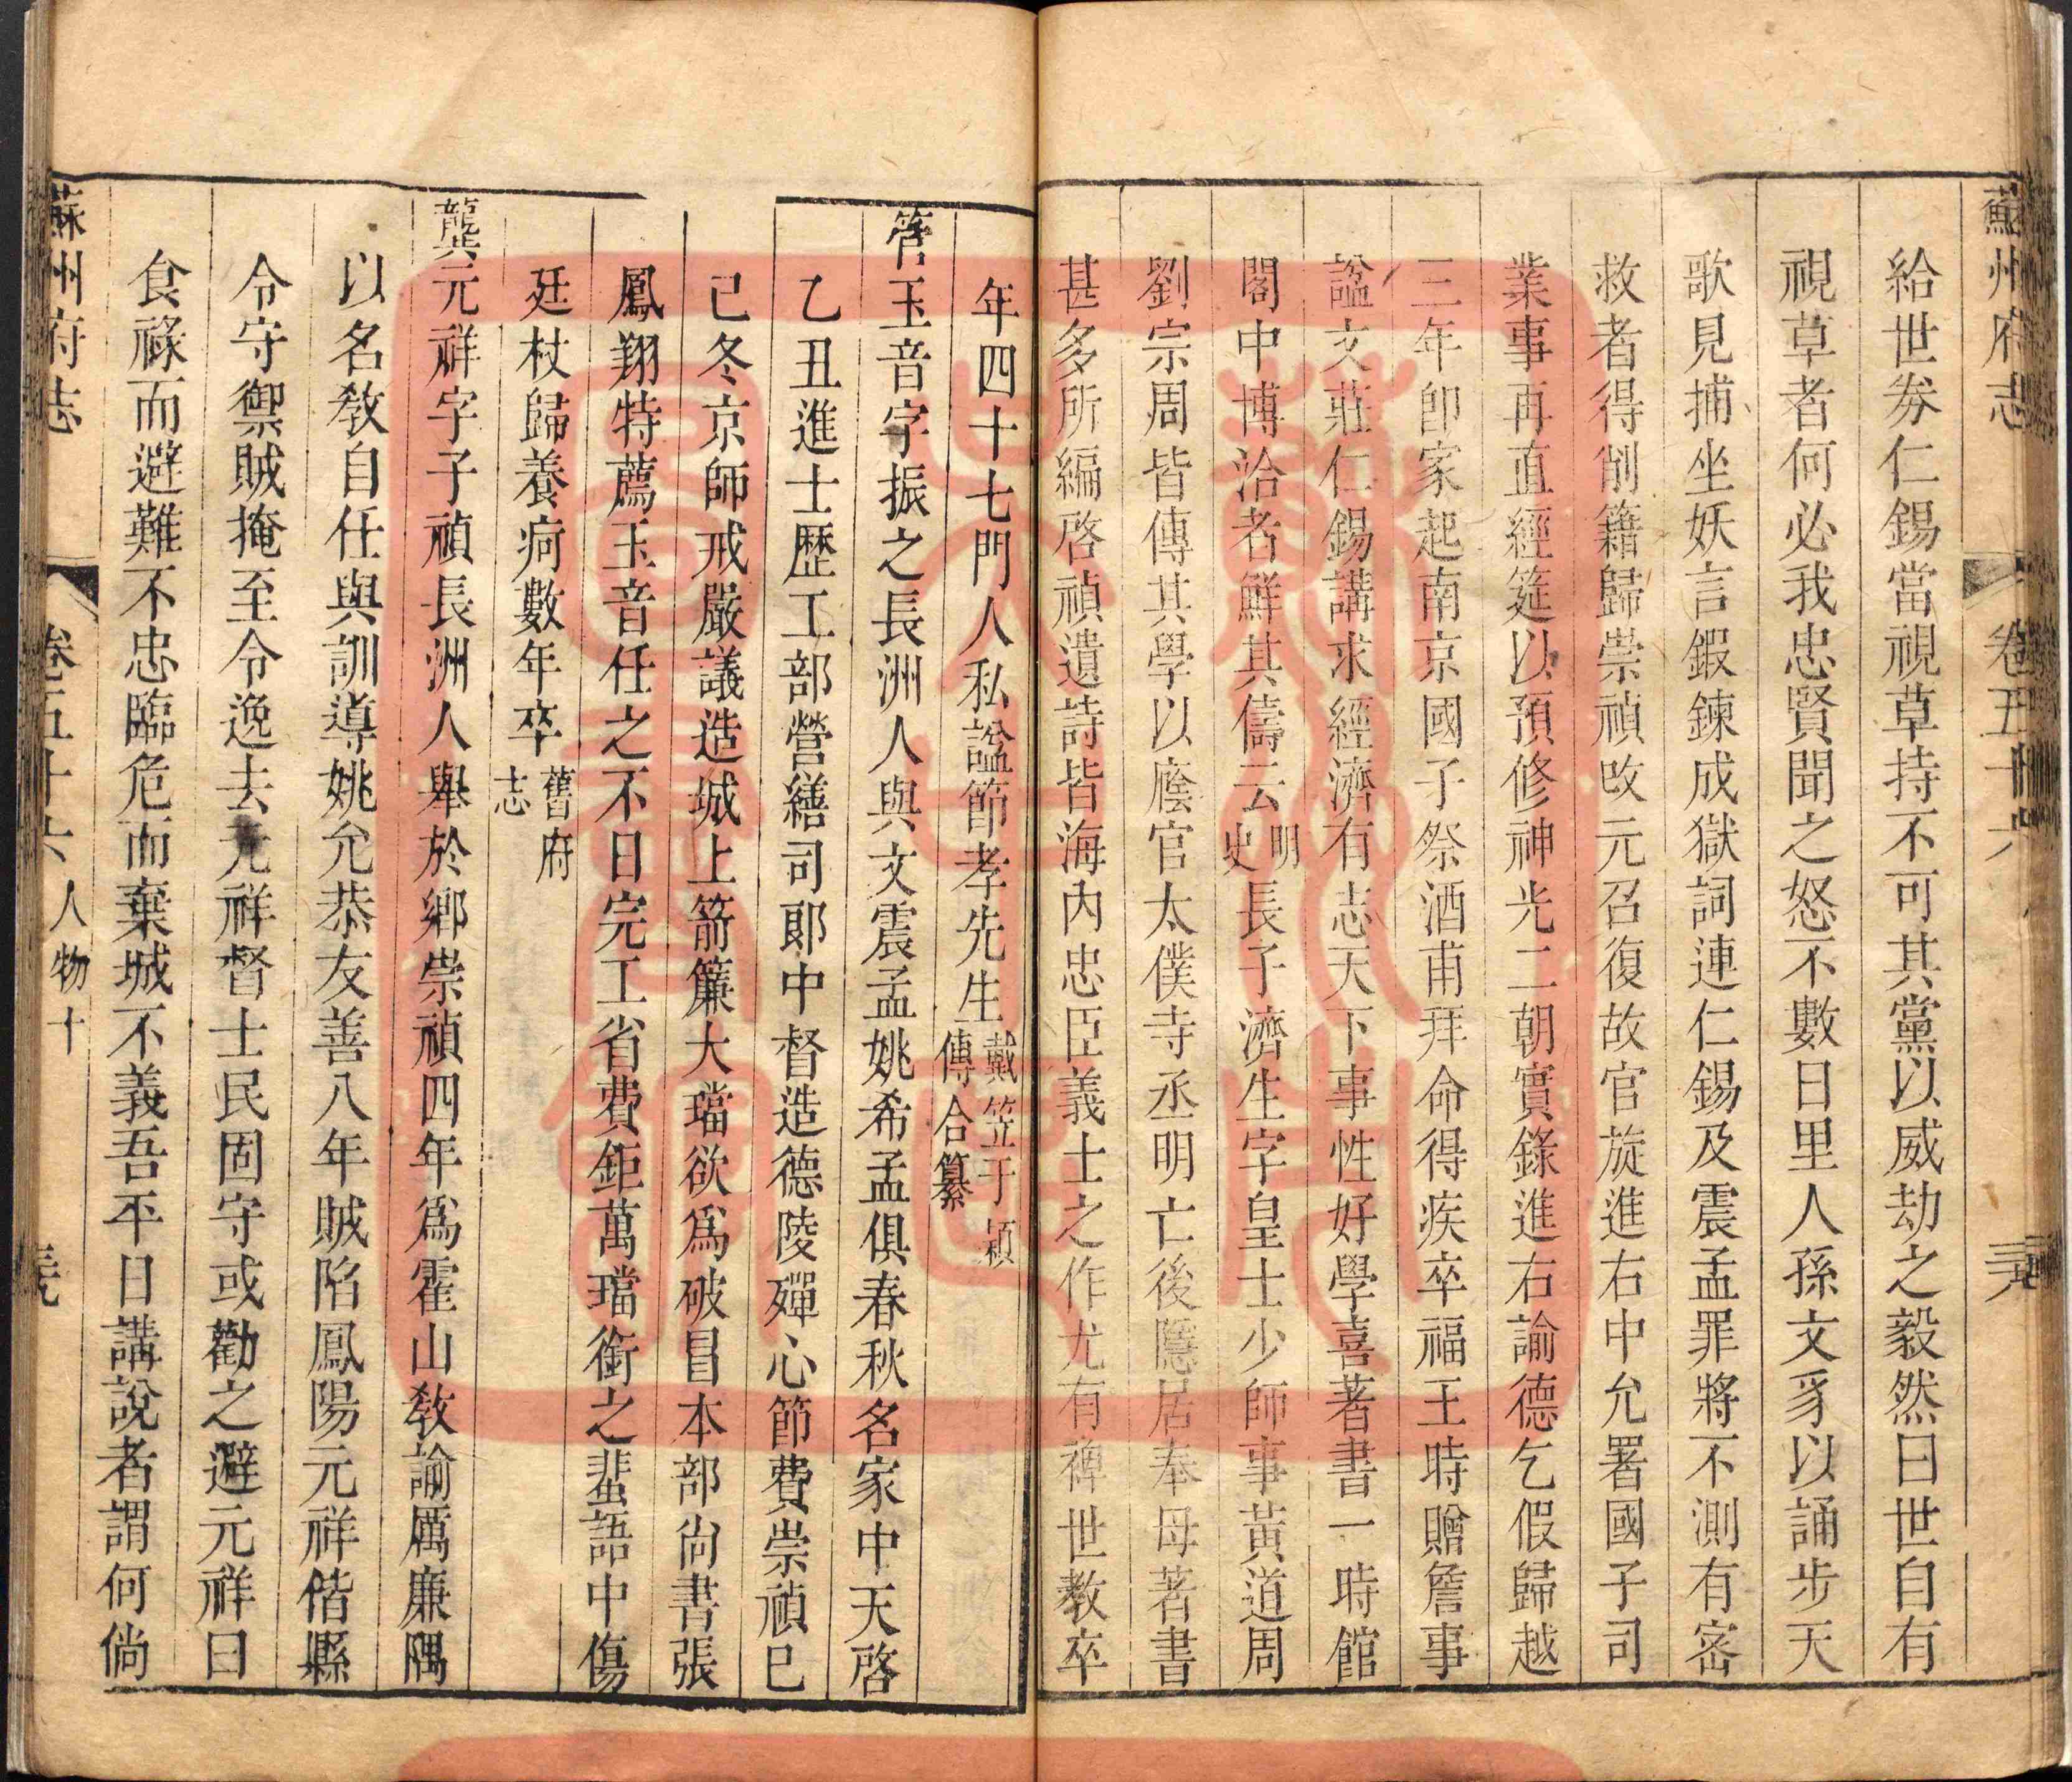 蘇州府志 卷五十六 三九
給世劵仁錫當視草持不可其黨以威劫之毅然曰世自有
視草者何必我忠賢聞之怒不數日里人孫文豸以誦步天
歌見捕坐妖言鍜鍊成獄詞連仁錫及震孟罪將不測有密
救者得削籍歸崇禎改元召復故官旋進右中允署國子司
業事再直經筵以預修神光二朝實錄進右諭德乞假歸越
三年卽家起南京國子祭酒甫拜命得疾卒福王時贈詹事
諡文莊仁錫講求經濟有志天下事性好學喜著書一時館
閣中博洽者鮮其儔云明史長子濟生字皇士少師事黃道周
劉宗周皆傳其學以廕官太僕寺丞明亡後隱居奉母著書
甚多所編啓禎遺詩皆海內忠臣義士之作尤有裨世教卒
年四十七門人私諡節孝先生戴笠于潁傳合纂
管玉音字振之長洲人與文震孟姚希孟俱春秋名家中天啓
乙丑進士歷工部營繕司郞中督造德陵殫心節費崇禎己
巳冬京師戒嚴議造城上箭簾大璫欲爲破冒本部尙書張
鳳翔特薦玉音任之不日完工省費鉅萬璫銜之蜚語中傷
廷杖歸養疴數年卒舊府志
龔元祥字子禎長洲人舉於鄉崇禎四年爲霍山敎諭厲廉隅
以名敎自任與訓導姚允恭友善八年賊陷鳳陽元祥偕縣
令守禦賊掩至令逸去元祥督士民固守或勸之避元祥曰
食祿而避難不忠臨危而棄城不義吾平日講說者謂何倘
蘇州府志 卷五十六 人物十 三九